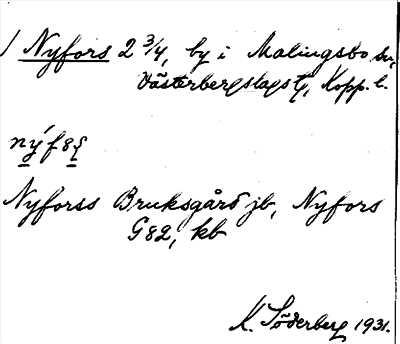 Nyfors 2 3/4, by i Malingsbo sn,
Västerbergslags tg, Kopp. l.
nýf8ş
Nyforss Bruksgård jb, Nyfors
G82, kb
K. Söderberg 1931.